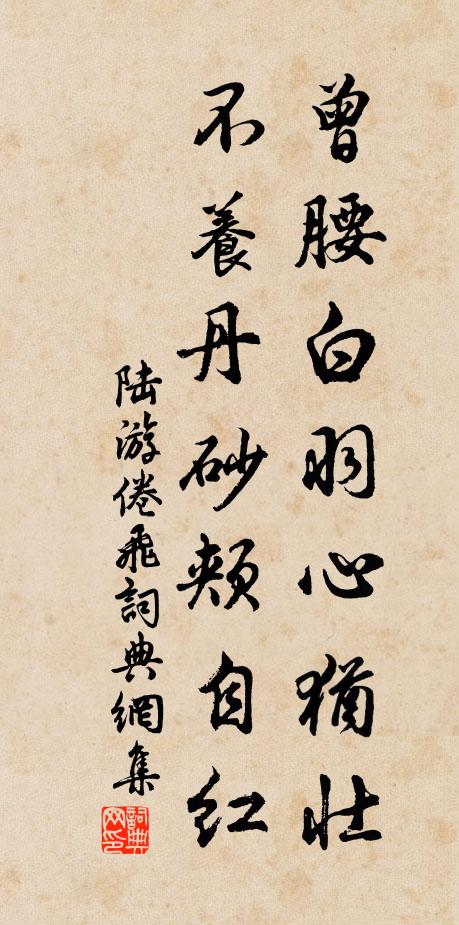 曾腰白羽心猶壯
不養丹砂頰自紅
陆游倦飛詞典網集
詞典網印